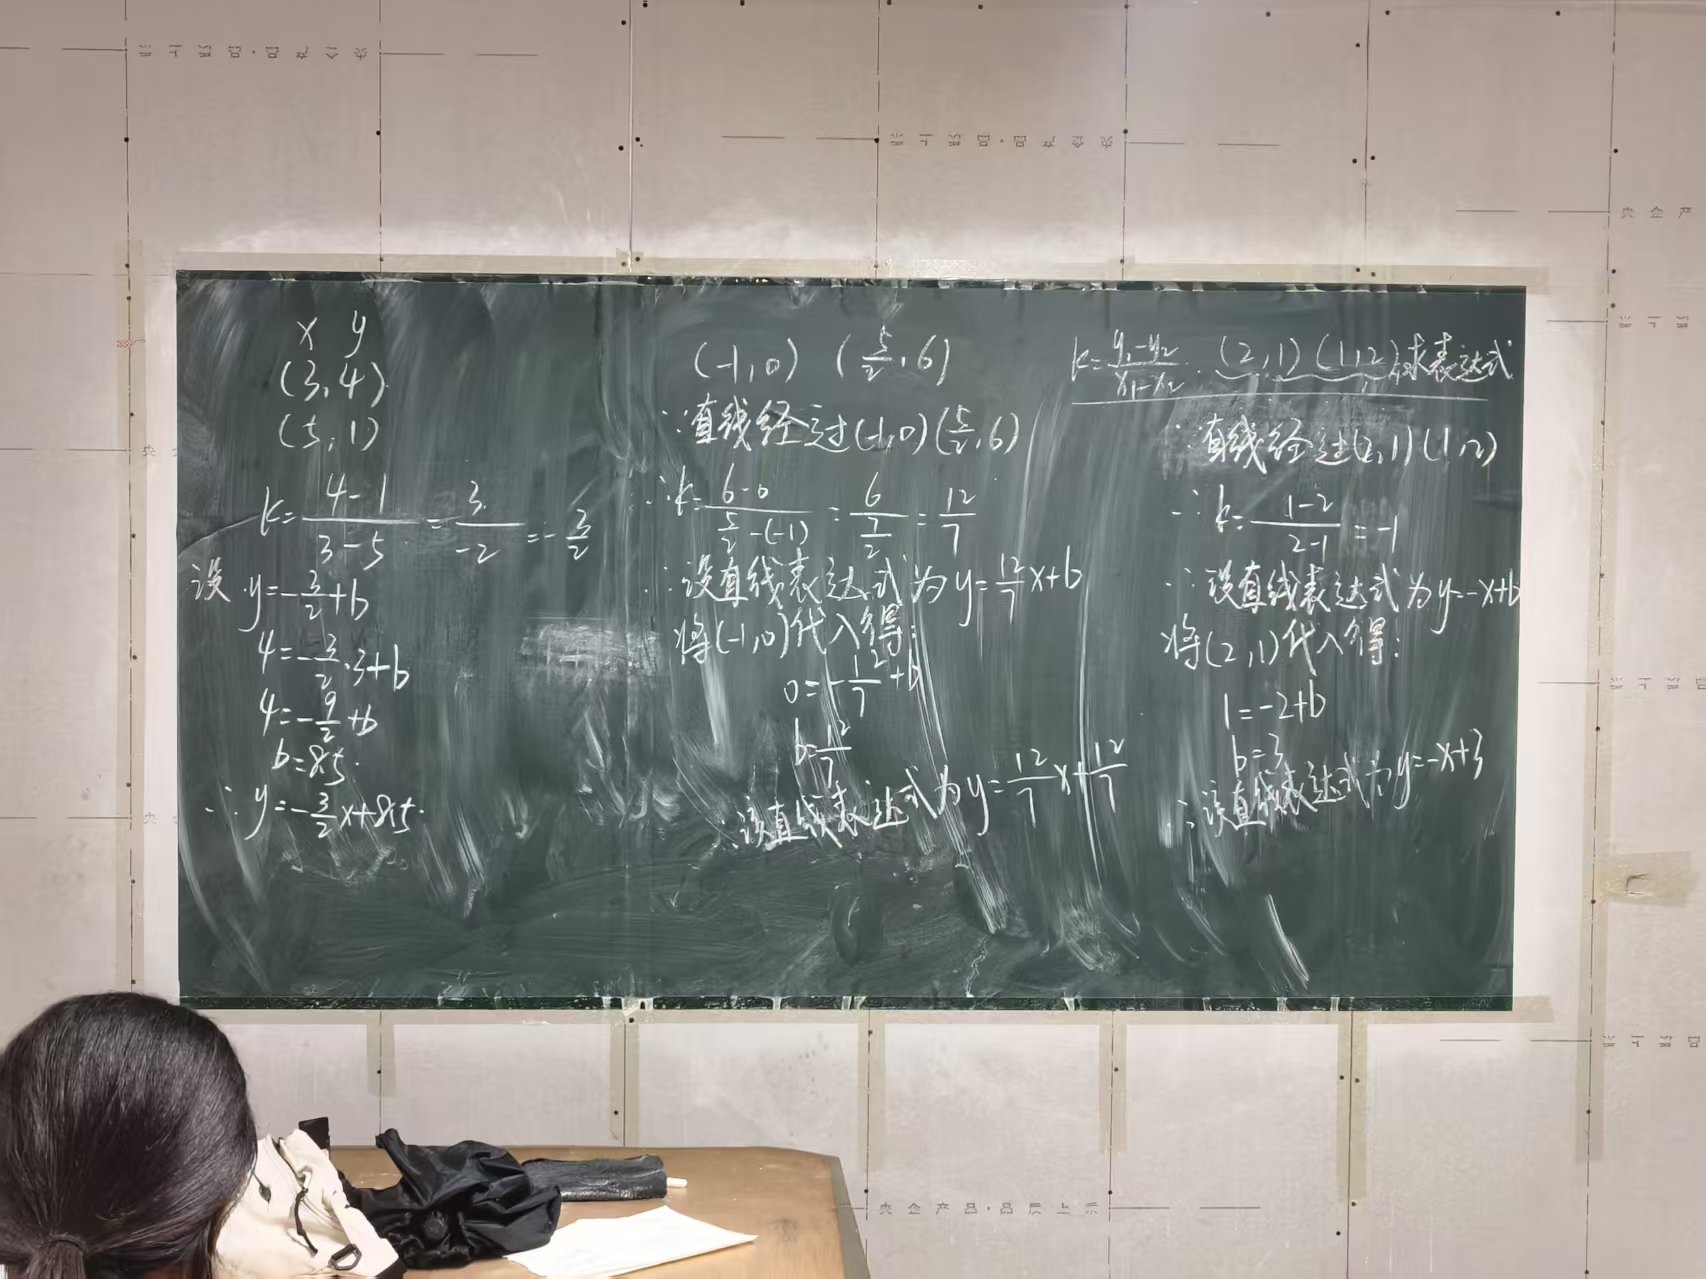 x y
(3,4)
(5,1)
k=\frac{4-1}{3-5}=\frac{3}{-2}=-\frac{3}{2}
设 y=-\frac{3}{2}+b
4=-\frac{3}{2}·3+b
4=-\frac{9}{2}+b
b=8.5.
∴ y=-\frac{3}{2}x+8.5.
(-1,0) (\frac{5}{2},6)
∵直线经过(-1,0)(\frac{5}{2},6)
∴k=\frac{6-0}{\frac{5}{2}-(-1)}=\frac{6}{\frac{7}{2}}=\frac{12}{7}
∴设直线表达式为y=\frac{12}{7}x+b
将(-1,0)代入得:
0=-\frac{12}{7}+b
b=\frac{12}{7}
∴该直线表达式为y=\frac{12}{7}x+\frac{12}{7}
k=\frac{y_1-y_2}{x_1-x_2}. (2,1)(1,2),求表达式
∵直线经过(2,1)(1,2)
∴k=\frac{1-2}{2-1}=-1
∴设直线表达式为y=-x+b
将(2,1)代入得:
1=-2+b
b=3
∴该直线表达式为y=-x+3
央企产品·品质上乘